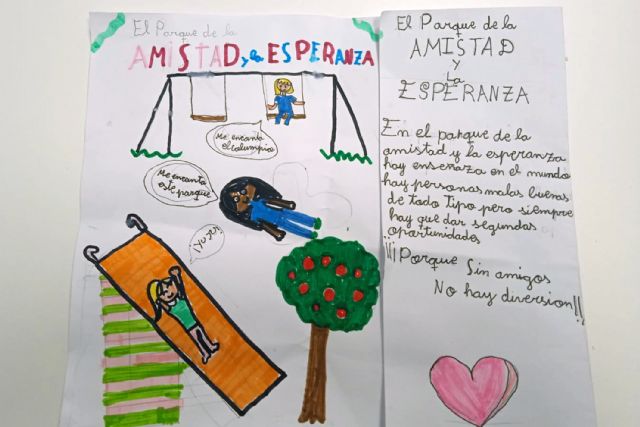 El Parque de la
AMISTAD y la ESPERANZA
Me encanta
el columpio
Me encanta
este parque
¡Yuju!
El Parque de la
AMISTAD
y
La
ESPERANZA
En el parque de la
amistad y la esperanza
hay enseñaza en el mundo
hay personas malas buenas
de todo tipo pero siempre
hay que dar segundas
oportunidades
¡¡¡Porque Sin amigos
No hay diversion!!